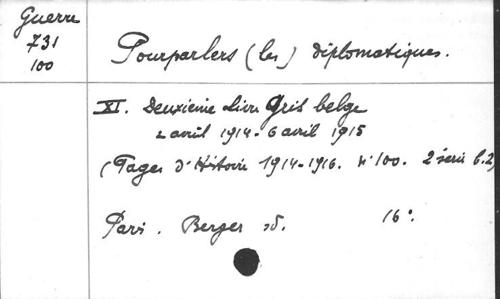 Guerre
731
100
Pourparlers (les) diplomatiques.
XI. Deuxieme Livre Gris belge
2 avril 1914 - 6 avril 1915
(Pages d'Histoire 1914-1916. N°100. 2 serie 6.2)
Paris. Berger sd. 16°.